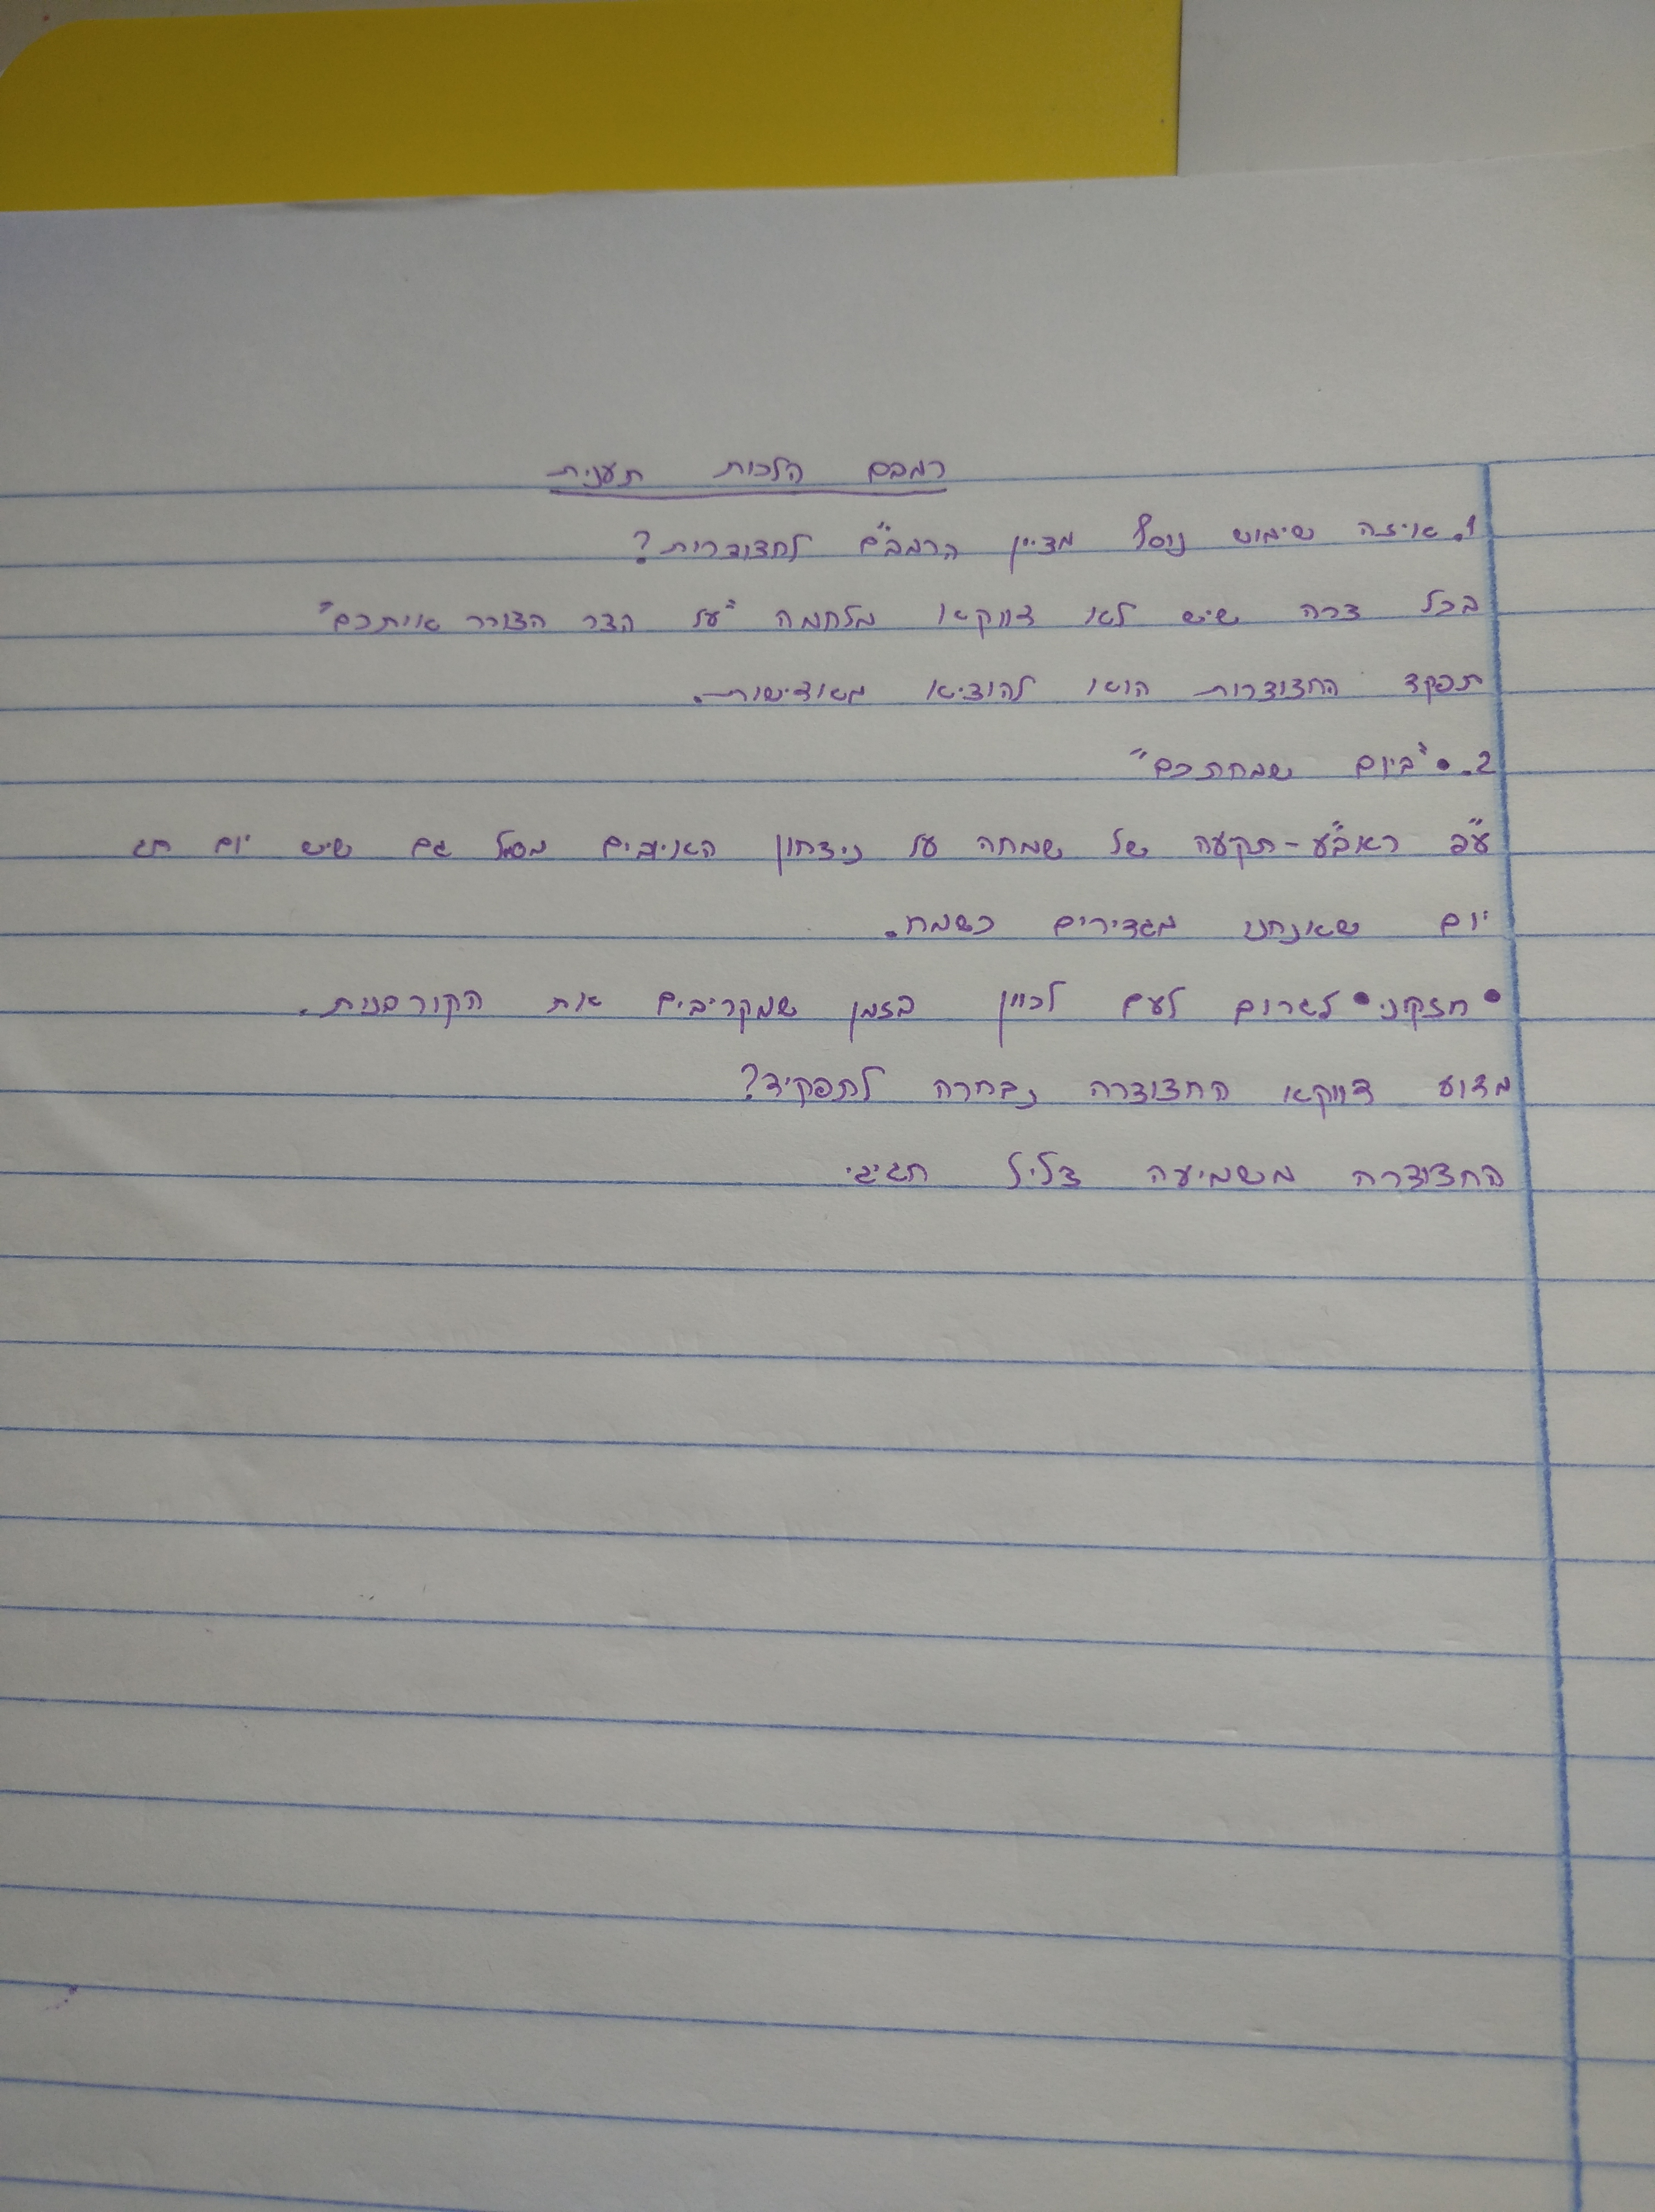 רמבם הלכות תענית
1. איזה שימוש נוסף מציין הרמב"ם לחצוצרות?
בכל צרה שיש לאו דווקא מלחמה "על הצר הצורר איתכם"
תפקד החצוצרות הוא להוציא מאדישות.
2. • "ביום שמחתכם"
ע"פ ראב"ע - תקיעה של שמחה על ניצחון האויבים מסמל גם שיש יום חג
יום שאנחנו מגדירים כשמח.
• חזקוני • לגרום לעם לכוין בזמן שמקריבים את הקורבנות.
מדוע דווקא החצוצרה נבחרה לתפקיד?
החצוצרה משמיעה צליל חגיגי